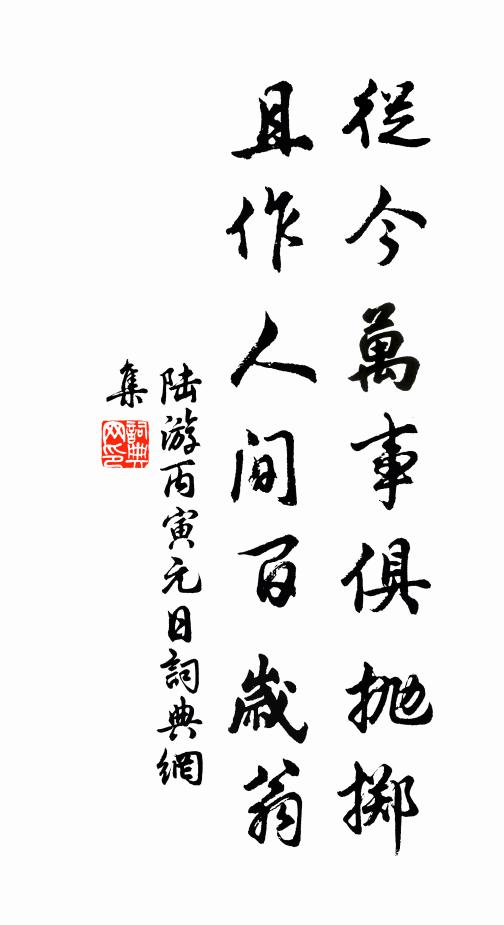 從今萬事俱抛擲
且作人間百歲翁
陸游丙寅元日詞典網
集
詞典网印